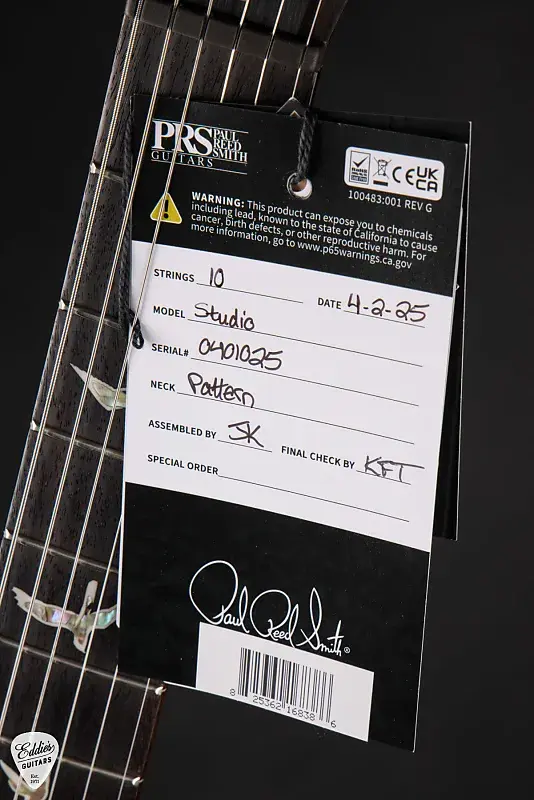 PRS PAUL REED SMITH
GUITARS
RoHS
CE UK CA
100483:001 REV G
WARNING: This product can expose you to chemicals
including lead, known to the state of California to cause
cancer, birth defects, or other reproductive harm. For
more information, go to www.p65warnings.ca.gov
STRINGS 10 DATE 4-2-25
MODEL Studio
SERIAL# 0401025
NECK Pattern
ASSEMBLED BY JK FINAL CHECK BY KFT
SPECIAL ORDER
Paul Reed Smith®
8 25362 16838 6
Eddie's
GUITARS
Est.
1971